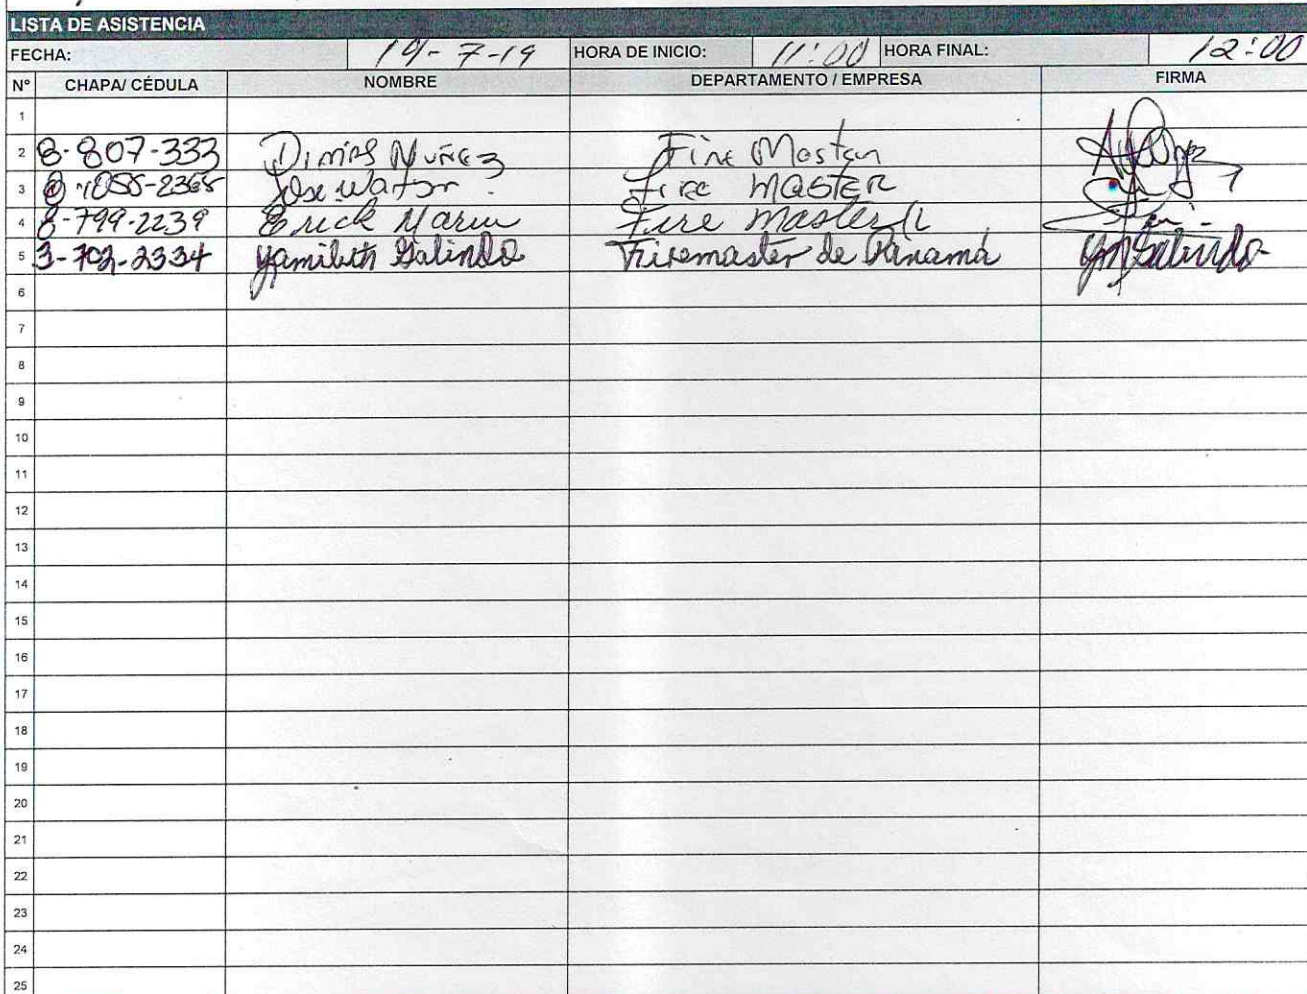 LISTA DE ASISTENCIA
FECHA: 19-7-19 HORA DE INICIO: 11:00 HORA FINAL: 12:00
N° CHAPA/ CÉDULA NOMBRE DEPARTAMENTO / EMPRESA FIRMA
1
2 8-807-333 Dimas Nuñez Fire Master
3 8-1055-2365 Jose Watson Fire MASTER
4 8-799-2239 Erick Marin Fire Master
5 3-702-2334 Yamileth Galindo Firemaster de Panamá YGalindo
6
7
8
9
10
11
12
13
14
15
16
17
18
19
20
21
22
23
24
25